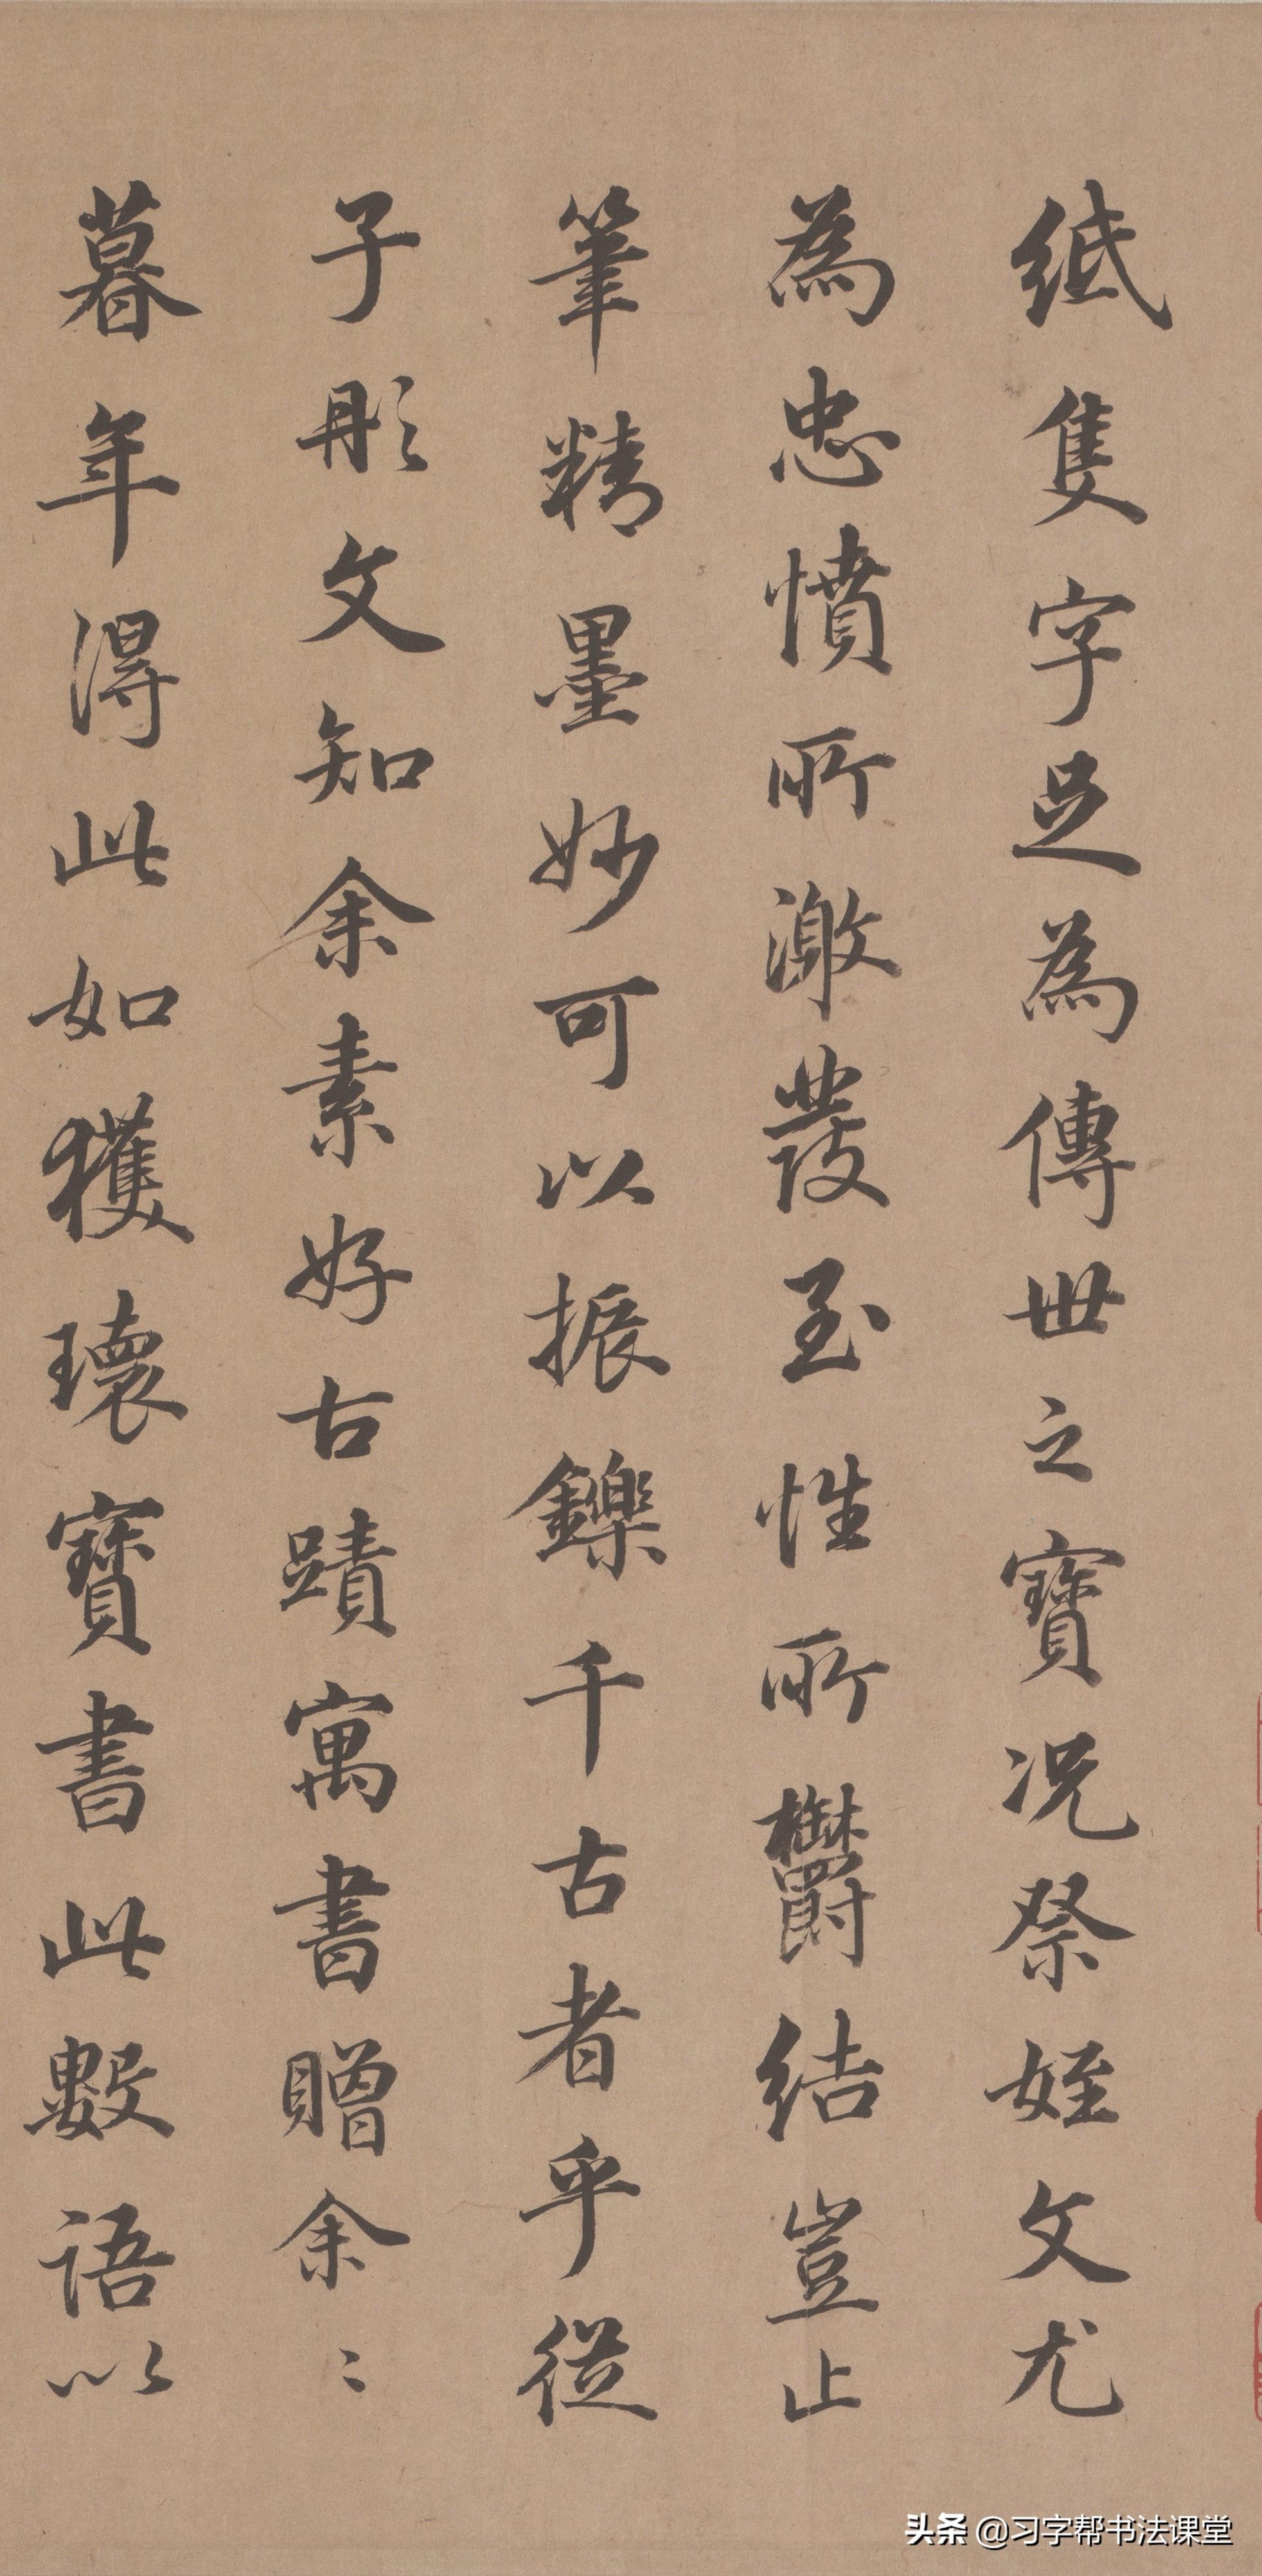 紙隻字足為傳世之寶况祭姪文尤
為忠憤所激發至性所鬱結豈止
筆精墨妙可以振鑠千古者乎從
子彤文知余素好古蹟寓書贈余〻
暮年得此如獲瓌寶書此數語以
头条 @习字帮书法课堂